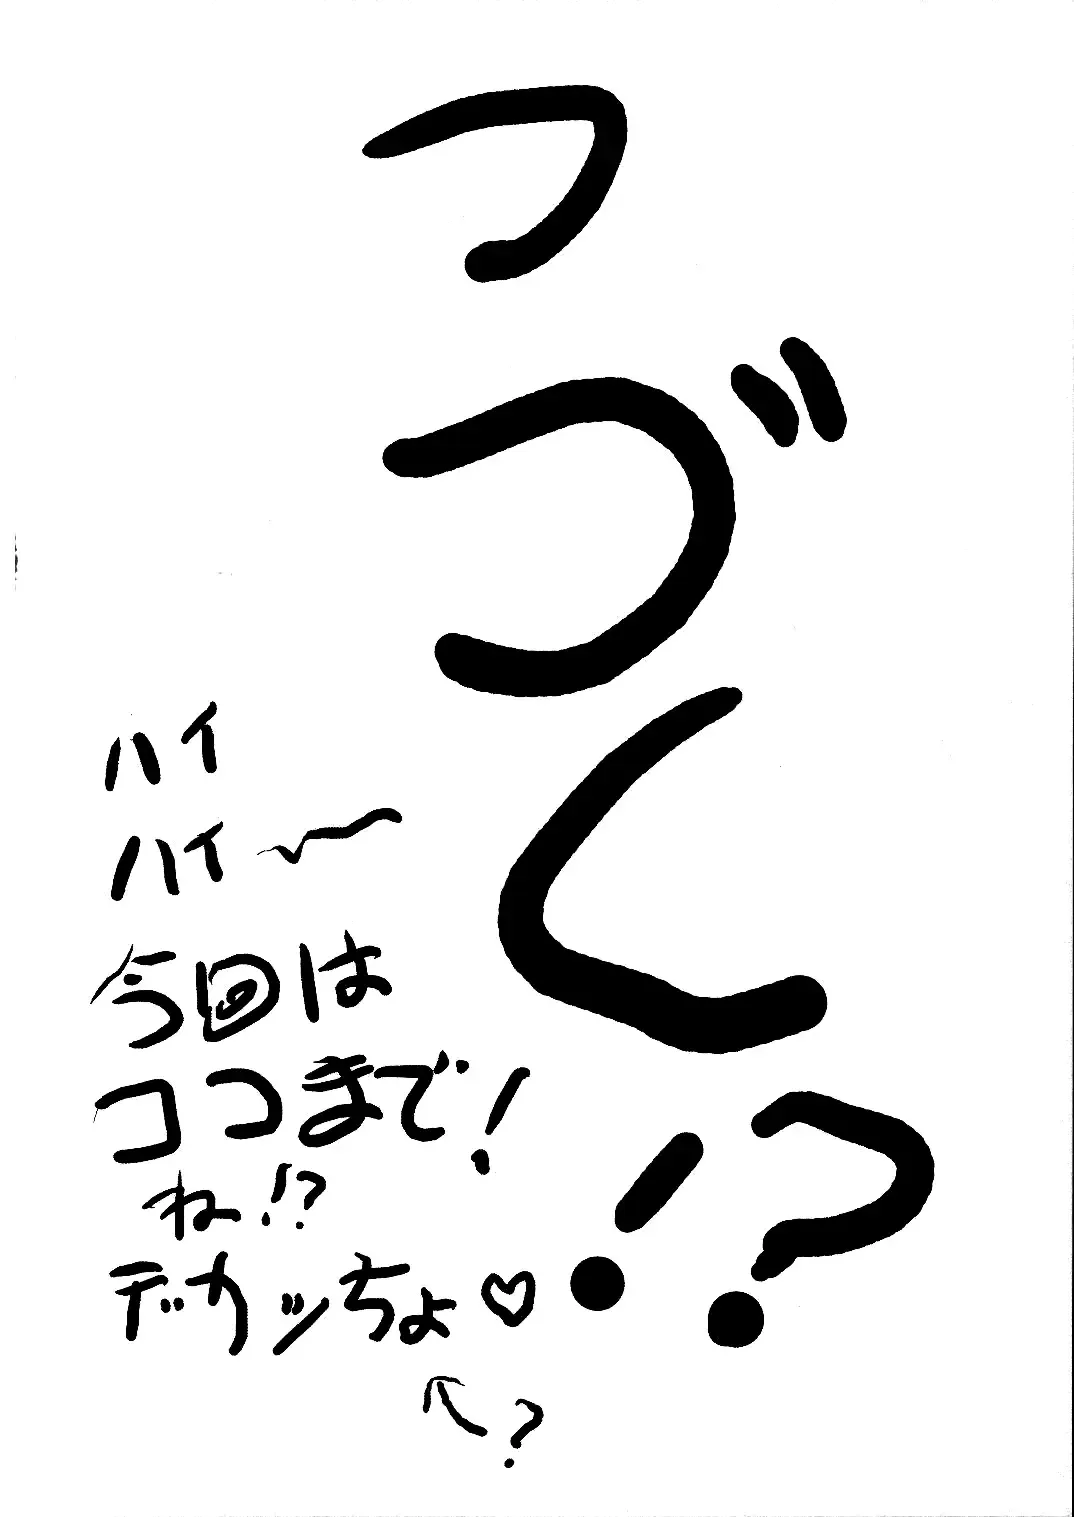 つづく!?
ハイ
ハイ〜
今回は
ココまで!
ね!?
デカッちょ♡
↖?